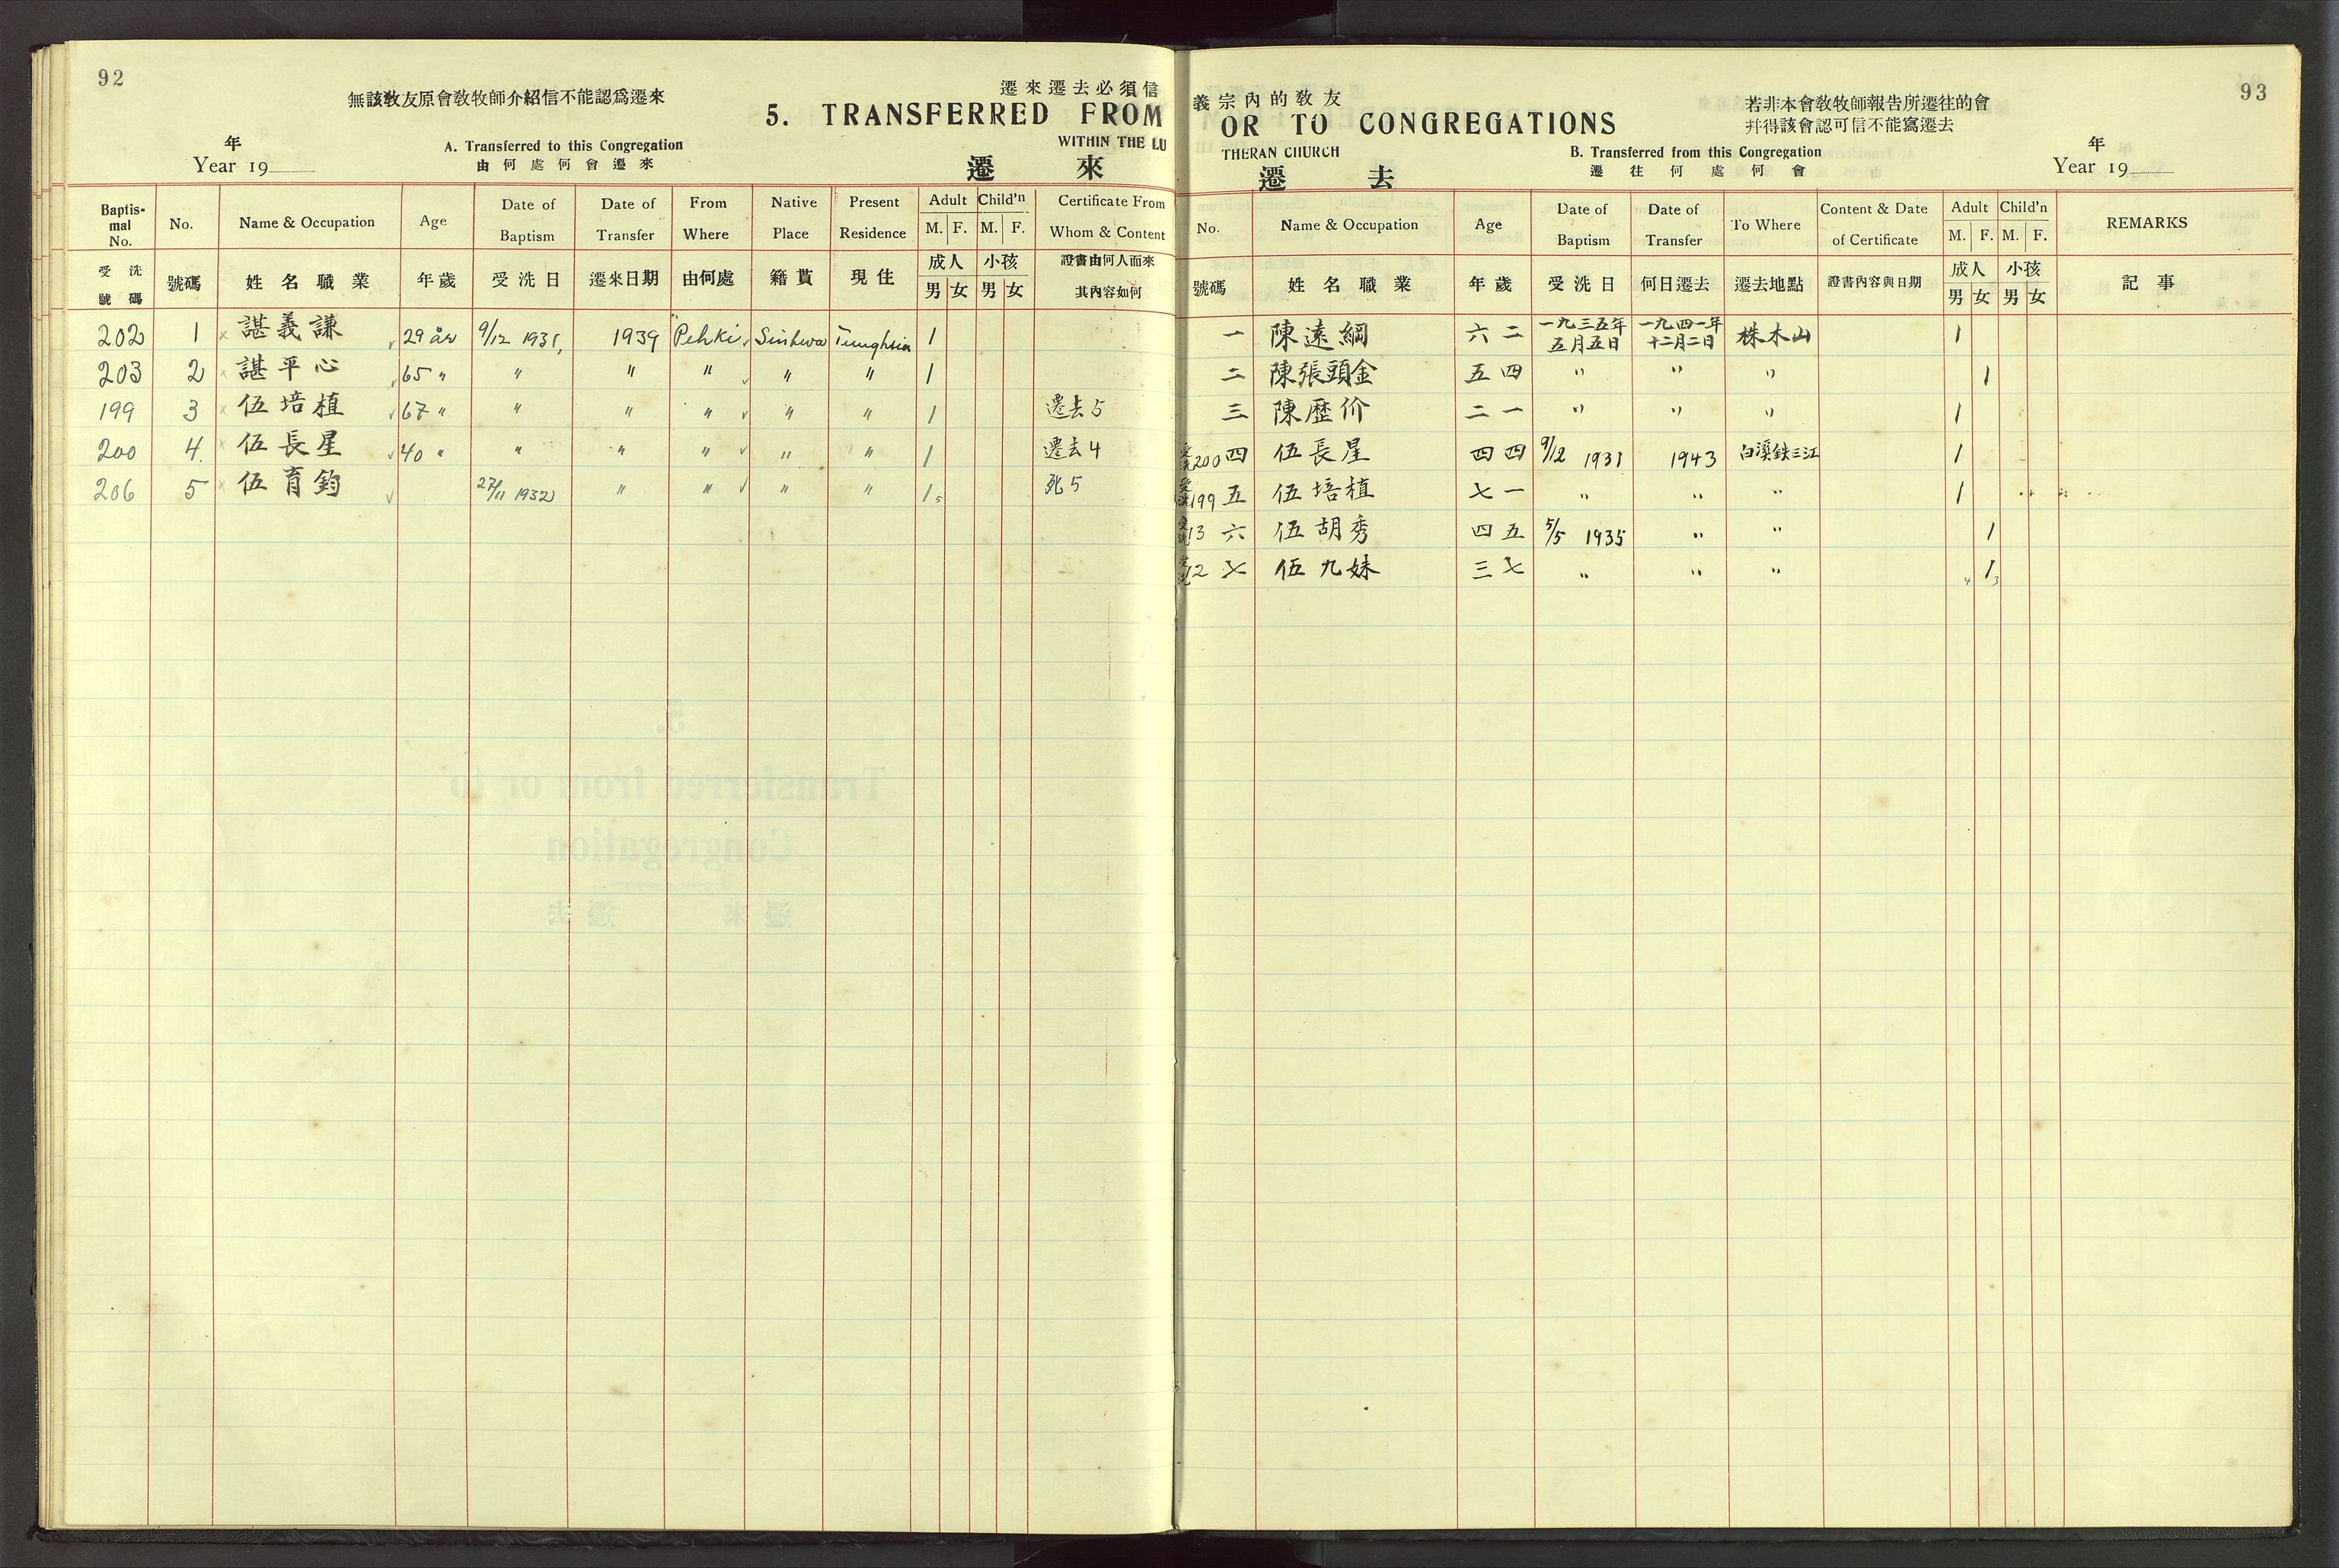 92
無該教友原會教牧師介紹信不能認爲遷來
遷來遷去必須信
5. TRANSFERRED FROM
WITHIN THE LU
年
Year 19
A. Transferred to this Congregation
由何處何會遷來
遷 來
Baptismal No. No. Name & Occupation Age Date of Baptism Date of Transfer From Where Native Place Present Residence Adult M. F. Child'n M. F. Certificate From Whom & Content
受洗號碼 號碼 姓名職業 年歲 受洗日 遷來日期 由何處 籍貫 現住 成人 男 女 小孩 男 女 證書由何人而來其內容如何
202 1 諶義謙 29 år 9/12 1931, 1939 Pehki Sinhwa Tunghsia 1
203 2 諶平心 65 " " " " " " 1
199 3 伍培植 67 " " " " " " 1 遷去5
200 4. 伍長星 40 " " " " " " 1 遷去4
206 5 伍育鈞 27/11 1932 " " " " 1 5 死5
93
義宗內的教友
OR TO CONGREGATIONS
THERAN CHURCH
若非本會教牧師報告所遷往的會
幷得該會認可信不能寫遷去
B. Transferred from this Congregation
遷往何處何會
年
Year 19
遷 去
No. Name & Occupation Age Date of Baptism Date of Transfer To Where Content & Date of Certificate Adult M. F. Child'n M. F. REMARKS
號碼 姓名職業 年歲 受洗日 何日遷去 遷去地點 證書內容與日期 成人 男 女 小孩 男 女 記事
一 陳遠綱 六二 一九三五年五月五日 一九四一年十二月二日 株木山 1
二 陳張頭金 五四 " " " 1
三 陳歷价 二一 " " " 1
受洗200 四 伍長星 四四 9/12 1931 1943 白溪鉄三江 1
受洗199 五 伍培植 七一 " " " 1
受洗13 六 伍胡秀 四五 5/5 1935 " " 1
受洗12 七 伍九妹 三七 " " " 4 1 3